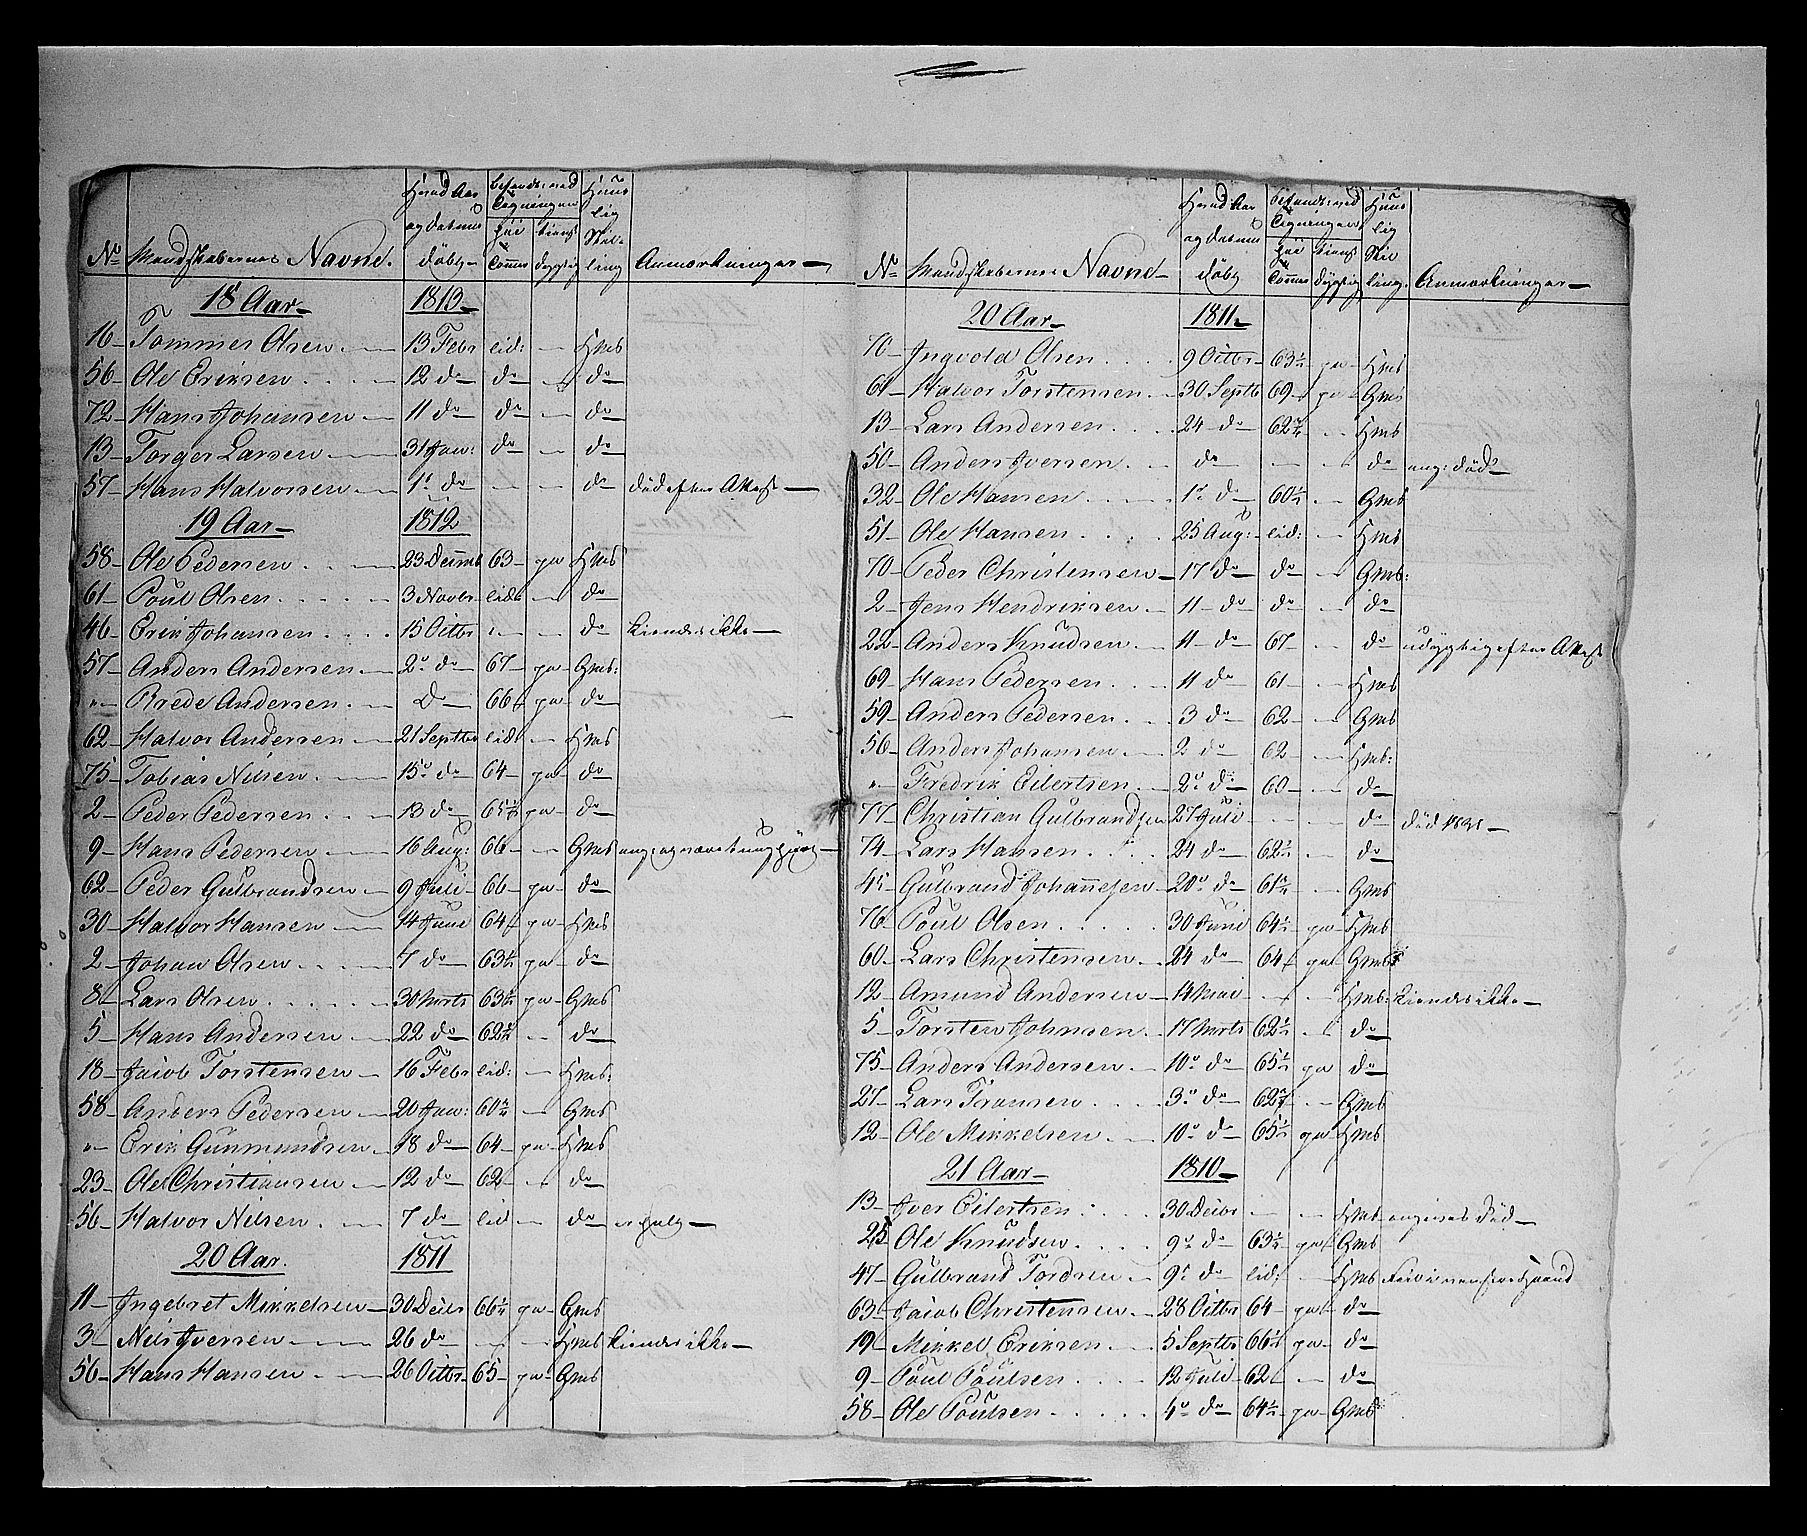 No Mandskabernes Navne. Hvad Aar og Datum döbt befunden ved Signingen Höi Tomme tienst dygtig Huus lig Stil- ling Anmærkninger
18 Aar 1813
16 Tommes Olsen 13 Febr lid: — Hms
56 Ole Eriksen 12 do do — do
72 Hans Johansen 11 do do — do
13 Torger Larsen 31 Jan: do — do
57 Hans Halvorsen 1. do — — do död efter Attest
19 Aar 1812
58 Ole Pedersen 23 Decmb 63 ja Hms
61 Poul Olsen 3 Novbr lid: — do
46 Erik Johansen 15 Octbr — — do kiendes ikke
57 Anders Andersen 2. do 67 ja Gms:
" Brede Andersen do 66 ja do
62 Halvor Andersen 21 Septbr lid: — Hms
75 Tobias Nilsen 15. do 64 ja do
2 Peder Pedersen 13 do 65½ ja do
9 Hans Pedersen 16 Aug: 66 — Gms
62 Peder Gulbrandsen 9 Juli 66 ja do
30 Halvor Hansen 14 Juni 64 ja Hms
2 Johan Olsen 7 do 63½ ja do
8 Lars Olsen 30 Marts 63½ ja Gms
5 Hans Andersen 22 do 62½ — do
18 Jacob Torstensen 16 Febr lid: — Hms:
58 Anders Pedersen 20 Jan: 60¾ — Gms
" Erik Gunmundsen 18 do 64 ja Hms
23 Ole Christiansen 12 do 62 — do
56 Halvor Nilsen 7 do lid — do
20 Aar. 1811
11 Ingebret Mikkelsen 30 Decbr 66½ ja Gms
3 Nils Iversen 26 do — — Hms kiendes ikke
56 Hans Hansen 26 Octbr 65 ja Gms
No Mandskabernes Navne Hvad Aar og Datum döbt befunden ved Signingen Höi Tomme tienst dygtig Huus lig Stil ling. Anmærkninger
20 Aar 1811
70 Ingvold Olsen 9 Octbr 63½ ja Hms
61 Halvor Torstensen 30 Septb 69 ja Gms
13 Lars Andersen 24 do 62¾ — Hms
50 Anders Iversen do — — do ang: död
32 Ole Hansen 1. do 60½ — Gms
51 Ole Hansen 25 Aug: lid: — Hms
70 Peder Christensen 17 do do — Gms:
2 Jens Hendriksen 11 do do — do
22 Anders Knudsen 11 do 67 — do udygtig efter Attest
69 Hans Pedersen 11 do 61 — Hms
59 Anders Pedersen 3 do 62 — Gms
56 Anders Johansen 2 do 62 — Hms:
" Fredrik Eilertsen 2. do 60 — do
77 Christian Gulbrandsen 27 Juli — — do död 1831
74 Lars Hansen 24 do 62½ — do
45 Gulbrand Johannesen 20. do 61¾ — Gms
76 Poul Olsen 30 Juni 64½ ja Hms
60 Lars Christensen 24 do 64 ja Gms
12 Amund Andersen 14 Mai — — Hms: kiendes ikke
5 Torsten Johnsen 17 Marts 62½ — do
75 Anders Andersen 10. do 65½ ja do
27 Lars Fransen 3. do 62¾ — Gms
12 Ole Mikkelsen 10. do 65½ ja Hms
21 Aar 1810
13 Iver Eilertsen 30 Decbr — — Hms angives död
25 Ole Knudsen 9. do 63½ ja Gms
47 Gulbrand Tordsen 9. do lid: — Hms
63 Jacob Christensen 28 Octbr 64 ja do
19 Mikkel Eriksen 5 Septbr 66½ ja do
9 Poul Poulsen 12 Juli 62 — do
58 Ole Poulsen 4. do 64½ ja Gms